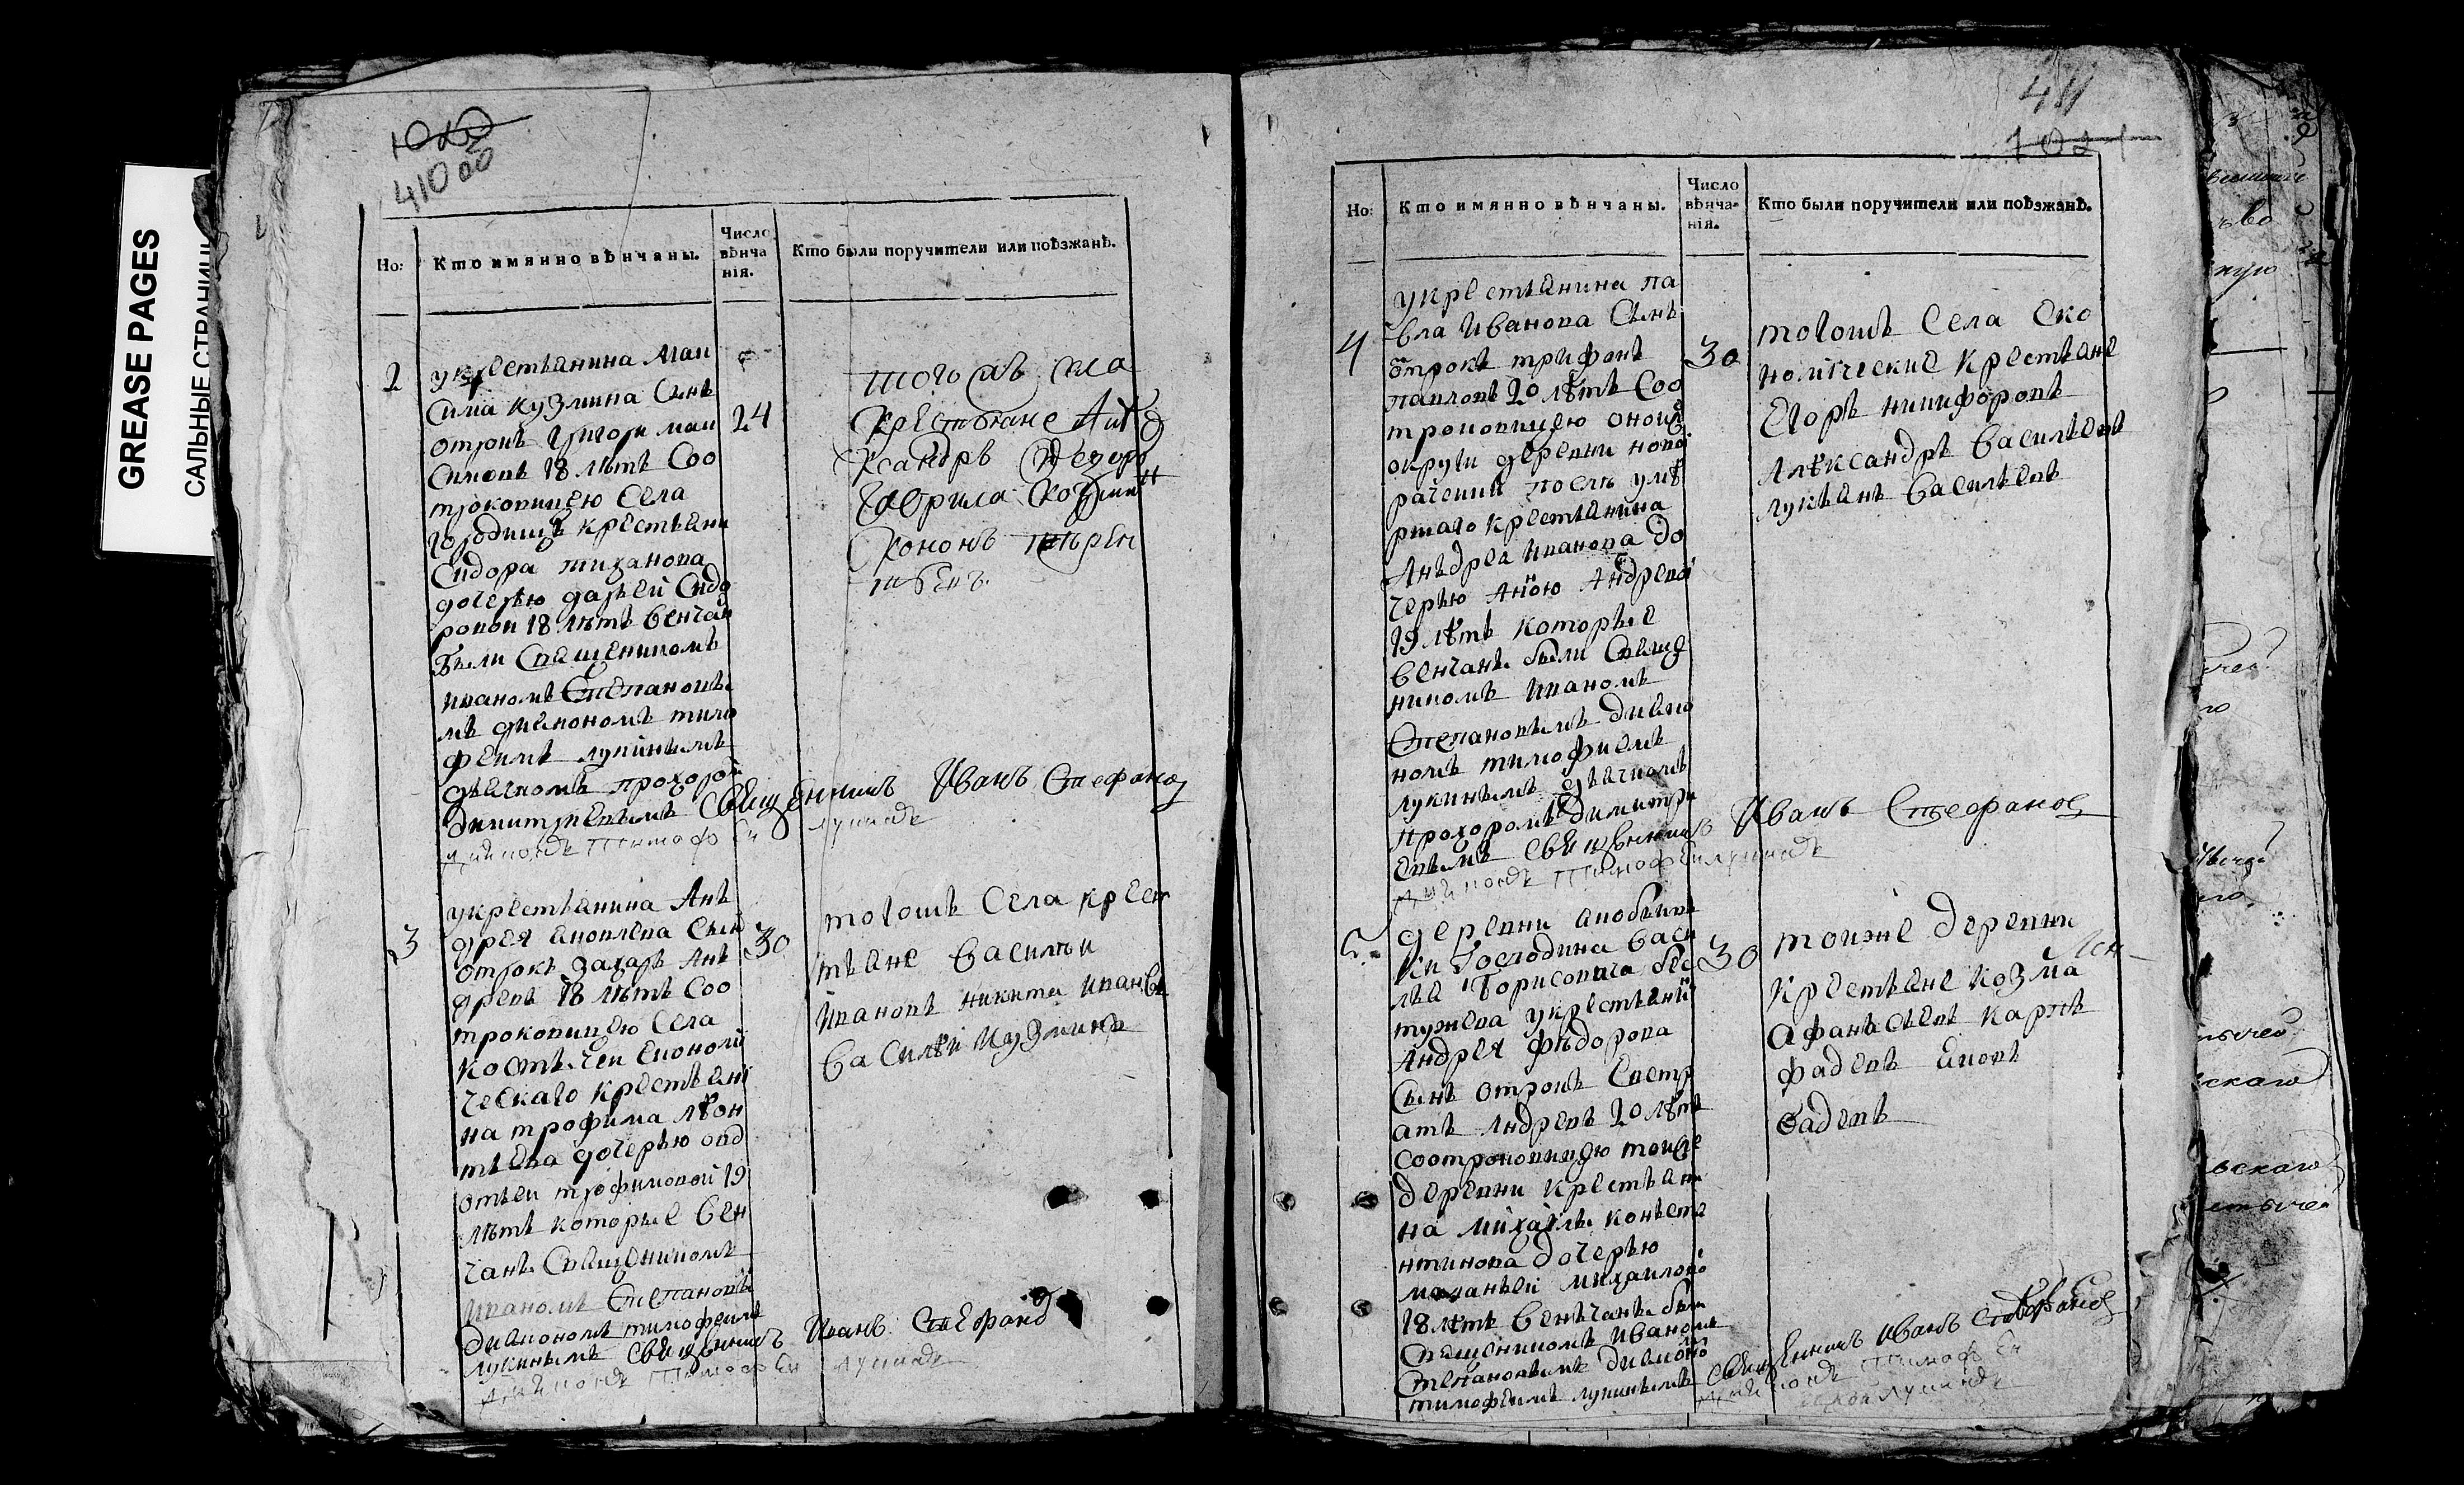 GREASE PAGES
САЛЬНЫЕ СТРАНИЦЫ
410 об
Но:
Кто имянно вѣнчаны.
Число вѣнча нія.
Кто были поручители или поѣзжанѣ.
2
укрестьянина Маи
сима кузмина Сынъ
отрокъ григори маи
симовъ 18 лѣтъ Соо
троковицею Села
городищъ крестьяни
Сидора тиханова
дочерью дарьей Сидо
ровой 18 лѣтъ венчан
были Священикомъ
иваномъ Степановы
мъ дияконом тимо
феимъ лукинымъ
дьячкомъ прохоро
димитриевымъ
24
тогожъ села
крестьяне
Гаврила Козмин
Кононъ
Священникъ Иванъ Стефановъ
диаконъ Тимофей лукинъ
3
укрестьянина Анъ
дрея Сынъ
отрокъ захаръ Анъ
дреевъ 18 лѣтъ Соо
троковицею Села
костычеи економи
ческаго крестьяни
на трофима лѣон
тьева дочерью овд
отьеи трофимовой 19
лѣтъ которые вен
чаны Священикомъ
иваномъ Степановы
дияконом тимофеимъ
лукинымъ
30
тогожъ села крест
тьяне василѣи
ивановъ никита ивановъ
василѣи кузминъ
Священникъ Иванъ Стефановъ
диаконъ Тимофей лукинъ
411
Но:
Кто имянно вѣнчаны.
Число вѣнча- нія.
Кто были поручители или поѣзжанѣ.
4
укрестьянина па
вла иванова Сынъ
отрокъ трифонъ
павловъ 20 лѣтъ Соо
троковицею оной
округи деревни нова
рачейки послѣ умѣ
ршаго крестьянина
Анъдрея иванова до
черью Анною Андревой
19 лѣтъ которые
венчаны были Свяще
никомъ иваномъ
Степановымъ дияко
номъ тимофиемъ
лукинымъ дьячкомъ
прохоромъ димитри
евымъ
30
тогожъ села еко
номические крестьяне
Егоръ никифоровъ
Алѣксандръ василъевъ
лукьянъ василъевъ
Священникъ Иванъ Стефановъ
диаконъ Тимофеи лукинъ
5
деревни
ки Господина васи
лья Борисовича бес
тужева укрестьяни
Андрея фѣдорова
Сынъ отрокъ Евстр
атъ Андревъ 20 лѣтъ
соотроковицею тоиже
деревни крестьяни
на михаилы конъста
нтинова дочерью
маланьеи михаилово
18 лѣтъ венъчаны были
священикомъ иваномъ
Степановымъ дияконо
тимофеимъ лукинымъ
30
тоиже деревни
крестьяне козма
афанасьевъ карпъ
фадеевъ
фадеевъ
Священникъ Иванъ Стефановъ
диаконъ Тимофеи
лукинъ